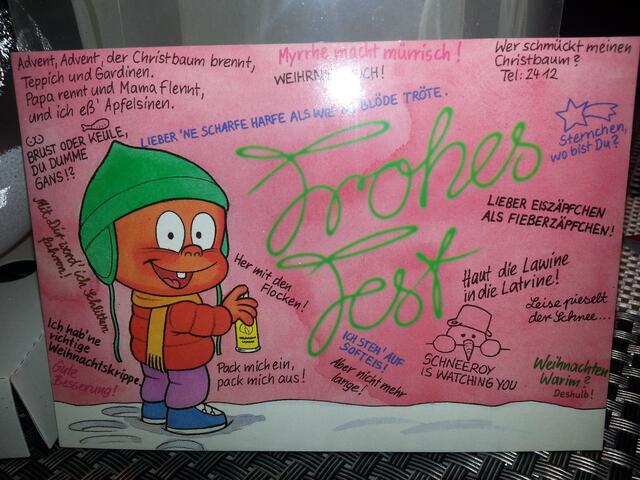 Advent, Advent, der Christbaum brennt,
Teppich und Gardinen.
Papa rennt und Mama flennt,
und ich eß' Apfelsinen.
Myrrhe macht mürrisch!
WEIHRAUCH!
Wer schmückt meinen
Christbaum?
Tel: 24 12
LIEBER 'NE SCHARFE HARFE ALS BLÖDE TRÖTE.
BRUST ODER KEULE,
DU DUMME
GANS!?
Sternchen,
wo bist Du?
Frohes
Fest
Mit Dir würd' ich Schlitten
fahren!
LIEBER EISZÄPFCHEN
ALS FIEBERZÄPFCHEN!
Her mit den
Flocken!
Haut die Lawine
in die Latrine!
Leise pieselt
der Schnee...
Ich hab' ne
richtige
Weihnachtskrippe.
Gute
Besserung!
Pack mich ein,
pack mich aus!
ICH STEH' AUF
SOFTEIS!
Aber nicht mehr
lange!
SCHNEEROY
IS WATCHING YOU
Weihnachten
Warim?
Deshulb!